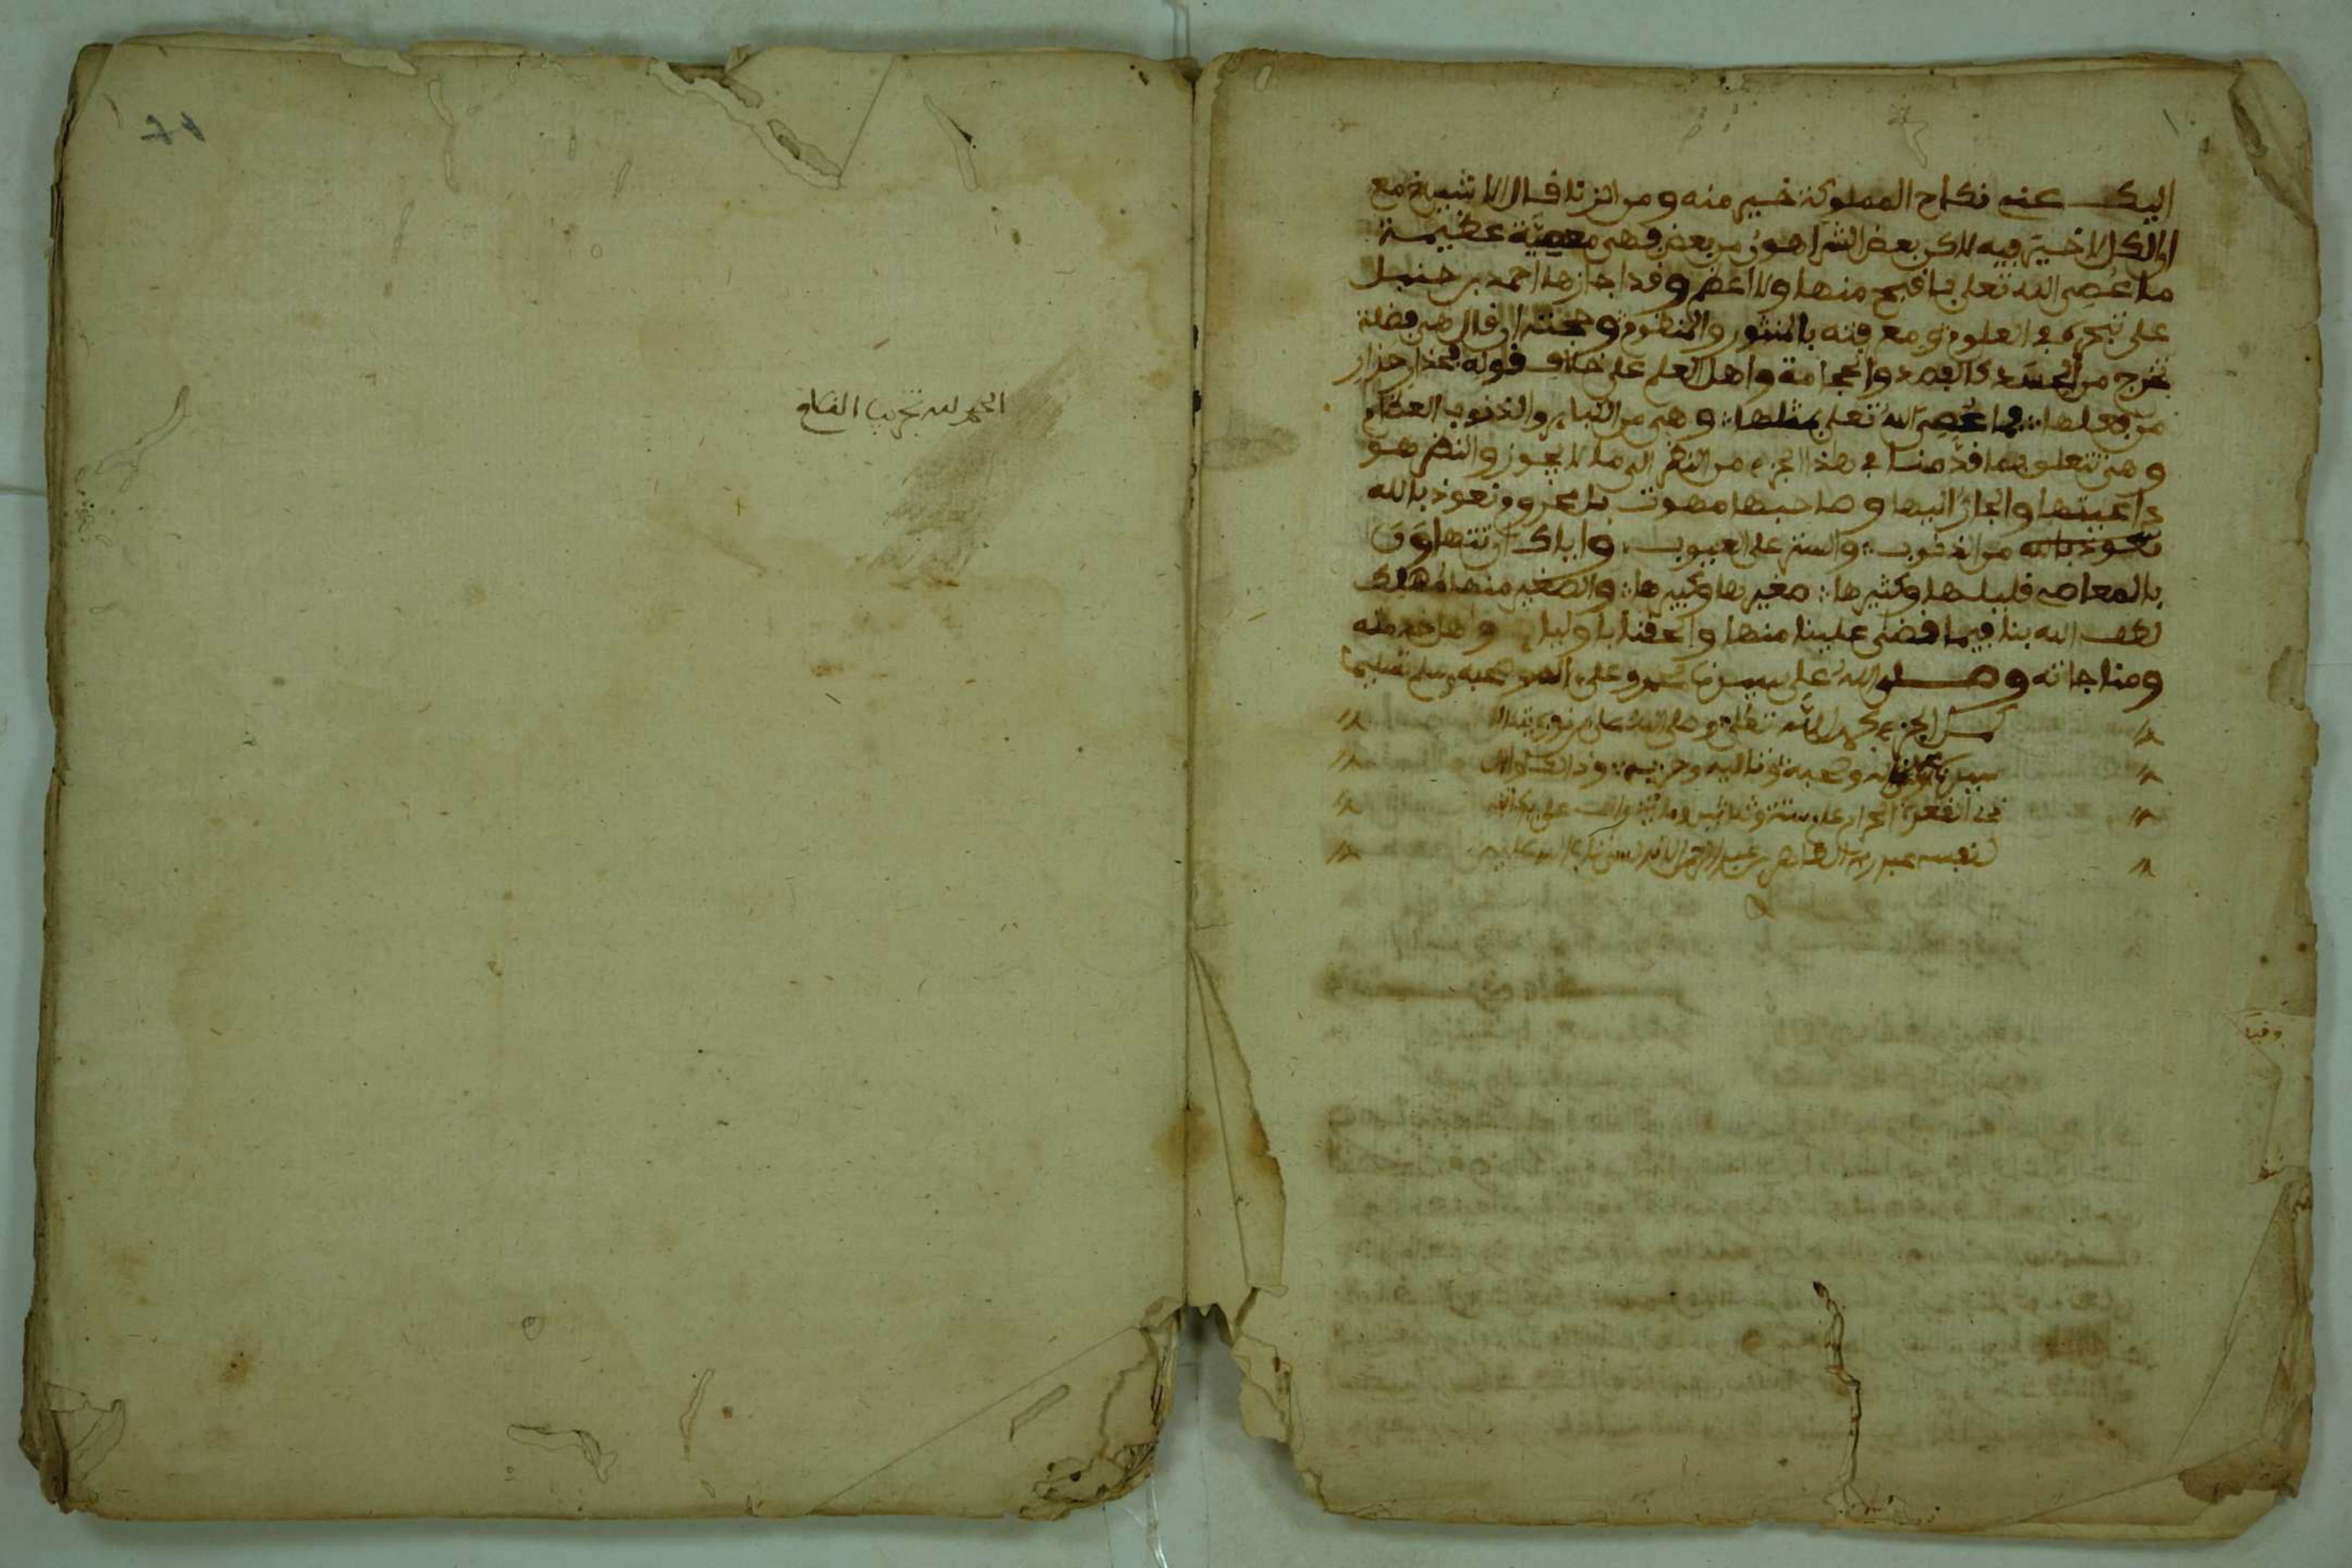 اليك عنه نكاح المملوكة خير منه ومن الزنا قال الاشياخ مع
ان الكل لا خير فيه لاكن بعض الشر اهون من بعض فهي معصية عظيمة
ما عُصِي الله تعلى باقبح منها ولا اعظم وقد اجازها احمد بن حنبل
على تبحره في العلوم ومعرفته بالمنثور والمنظوم وحجته ان قال هي فضلة
تخرج من الجسد كالفصد والحجامة واهل العلم على خلاف قوله فحذار حذار
من فعلها فما عُصِي الله تعلى بمثلها وهي من الكبائر والذنوب العظام
وهي تتعلق بما قدّمنا في هذا الجزء من النظر الى ما لا يجوز والنظر هو
داعيتها والجارّ اليها وصاحبها ونعوذ بالله
نعوذ بالله من الذنوب والستر على العيوب واياك ان تتهاون
بالمعاصي قليلها وكثيرها صغيرها وكبيرها والصغير منها مهلك
لطف الله بنا فيما قضى علينا منها والحقنا باوليائه واهل خدمته
ومناجاته وصلى الله على سيدنا محمد وعلى اله وصحبه وسلم تسليما
كمل الجزء بحمد الله تعلى وصلى الله على
سيدنا محمد وءاله وصحبه
ذي القعدة الحرام على ستة وثلاثين ومائة والف على يد
لنفسه عبد ربه الطاهر بن عبد الرحمن
الحمد لله تجريب القلم